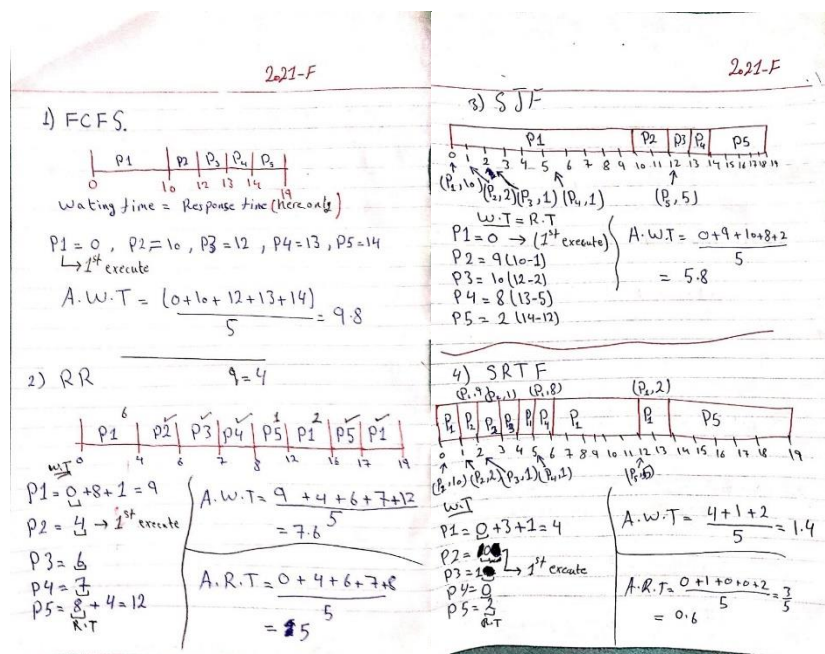 2021-F
1) FCFS.
P1 P2 P3 P4 P5
0 10 12 13 14 19
Wating time = Response time (here only)
P1 = 0 , P2 = 10 , P3 = 12 , P4 = 13 , P5 = 14
↳ 1st execute
A.W.T = (0+10+12+13+14) / 5 = 9.8
2) RR q=4
P1 6 P2 ✓ P3 ✓ P4 ✓ P5 1 P1 2 P5 ✓ P1 ✓
0 4 6 7 8 12 16 17 19
W.T
P1 = 0 + 8 + 1 = 9
P2 = 4 → 1st execute
P3 = 6
P4 = 7
P5 = 8 + 4 = 12
R.T
A.W.T = 9 + 4 + 6 + 7 + 12 / 5
= 7.6
A.R.T = 0 + 4 + 6 + 7 + 8 / 5
= 5
2021-F
3) SJF
P1 P2 P3 P4 P5
0 1 2 3 4 5 6 7 8 9 10 11 12 13 14 15 16 17 18 19
(P1,10) (P2,2) (P3,1) (P4,1) (P5,5)
W.T = R.T
P1 = 0 → (1st execute)
P2 = 9 (10-1)
P3 = 10 (12-2)
P4 = 8 (13-5)
P5 = 2 (14-12)
A.W.T = 0+9+10+8+2 / 5
= 5.8
4) SRTF
(P1,9) (P2,1) (P1,8) (P1,2)
P1 P2 P2 P3 P1 P4 P1 P1 P5
0 1 2 3 4 5 6 7 8 9 10 11 12 13 14 15 16 17 18 19
(P1,10) (P2,2) (P3,1) (P4,1) (P5,5)
W.T
P1 = 0 + 3 + 1 = 4
P2 =
P3 = 1 → 1st execute
P4 = 0
P5 = 2
R.T
A.W.T = 4 + 1 + 2 / 5 = 1.4
A.R.T = 0 + 1 + 0 + 0 + 2 / 5 = 3/5
= 0.6